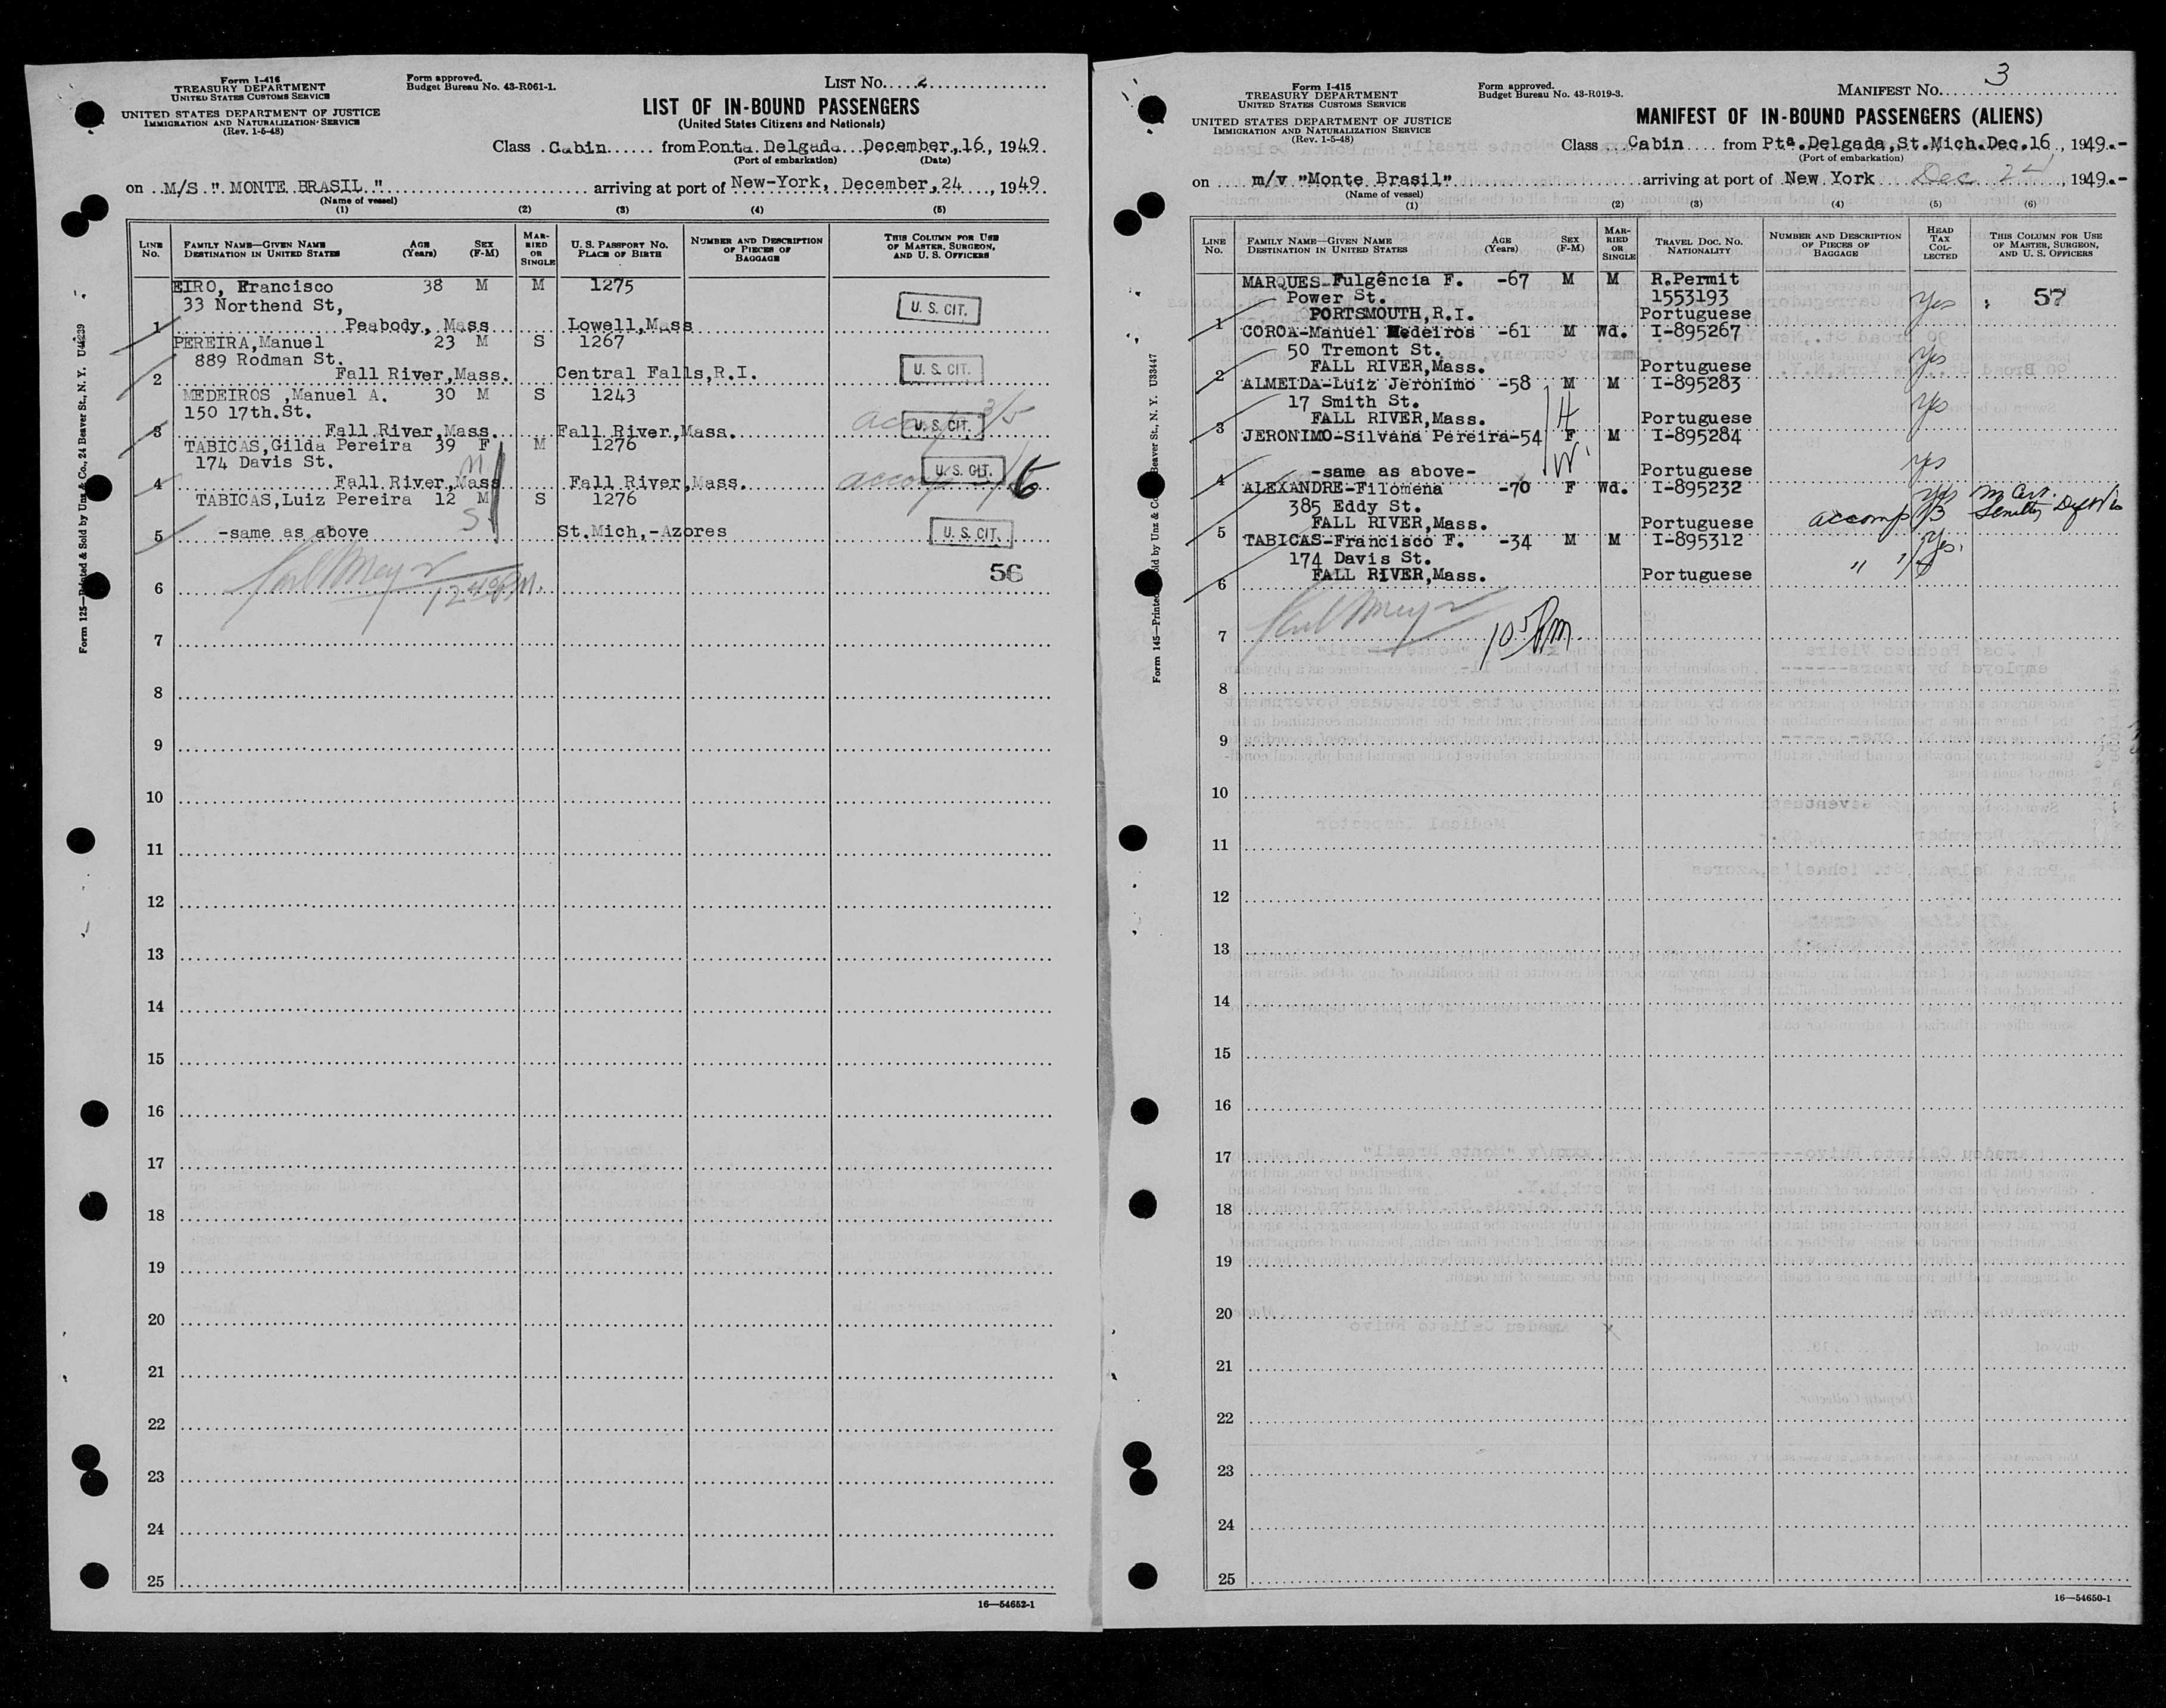 Form I-416
TREASURY DEPARTMENT
UNITED STATES CUSTOMS SERVICE
UNITED STATES DEPARTMENT OF JUSTICE
IMMIGRATION AND NATURALIZATION SERVICE
(Rev. 1-5-48)
Form approved.
Budget Bureau No. 43-R061-1.
LIST NO. 2
LIST OF IN-BOUND PASSENGERS
(United States Citizens and Nationals)
Class Cabin from Ponta Delgada December, 16, 1949
(Port of embarkation) (Date)
on M/S " MONTE BRASIL " arriving at port of New-York, December, 24, 1949
(Name of vessel)
(1) (2) (3) (4) (5)
LINE NO.
FAMILY NAME—GIVEN NAME
DESTINATION IN UNITED STATES
AGE (Years)
SEX (F-M)
MARRIED OR SINGLE
U. S. PASSPORT NO.
PLACE OF BIRTH
NUMBER AND DESCRIPTION OF PIECES OF BAGGAGE
THIS COLUMN FOR USE OF MASTER, SURGEON, AND U. S. OFFICERS
EIRO, Francisco 38 M M 1275
33 Northend St, U. S. CIT.
1 Peabody, Mass Lowell, Mass
PEREIRA, Manuel 23 M S 1267
889 Rodman St. U. S. CIT.
2 Fall River, Mass. Central Falls, R.I.
MEDEIROS ,Manuel A. 30 M S 1243
150 17th.St. U. S. CIT.
3 Fall River, Mass. Fall River, Mass.
TABICAS, Gilda Pereira 39 F M 1276
174 Davis St. U. S. CIT.
4 Fall River, Mass Fall River, Mass.
TABICAS, Luiz Pereira 12 M S 1276
5 -same as above St. Mich,-Azores U. S. CIT.
56
6
7
8
9
10
11
12
13
14
15
16
17
18
19
20
21
22
23
24
25
16—54652-1
Form 125—Printed & Sold by Unz & Co., 24 Beaver St., N. Y.
Form I-415
TREASURY DEPARTMENT
UNITED STATES CUSTOMS SERVICE
UNITED STATES DEPARTMENT OF JUSTICE
IMMIGRATION AND NATURALIZATION SERVICE
(Rev. 1-5-48)
Form approved.
Budget Bureau No. 43-R019-3.
MANIFEST NO. 3
MANIFEST OF IN-BOUND PASSENGERS (ALIENS)
Class Cabin from Ptª. Delgada, St. Mich. Dec. 16, 1949.-
(Port of embarkation)
on m/v "Monte Brasil" arriving at port of New York Dec 24, 1949.-
(Name of vessel)
(1) (2) (3) (4) (5) (6)
LINE NO.
FAMILY NAME—GIVEN NAME
DESTINATION IN UNITED STATES
AGE (Years)
SEX (F-M)
MARRIED OR SINGLE
TRAVEL DOC. NO.
NATIONALITY
NUMBER AND DESCRIPTION OF PIECES OF BAGGAGE
HEAD TAX COLLECTED
THIS COLUMN FOR USE OF MASTER, SURGEON, AND U. S. OFFICERS
MARQUES-Fulgência F. -67 M M R.Permit
Power St. 1553193 Yes 57
1 PORTSMOUTH, R.I. Portuguese
COROA-Manuel Medeiros -61 M Wd. I-895267
50 Tremont St. Yes
2 FALL RIVER, Mass. Portuguese
ALMEIDA-Luiz Jeronimo -58 M M I-895283
17 Smith St. H Yes
3 FALL RIVER, Mass. Portuguese
JERONIMO-Silvana Pereira-54 F M I-895284
W. yes
4 -same as above- Portuguese
ALEXANDRE-Filomena -70 F Wd. I-895232
385 Eddy St. Yes
5 FALL RIVER, Mass. Portuguese accomp
TABICAS-Francisco F. -34 M M I-895312
174 Davis St. Yes.
6 FALL RIVER, Mass. Portuguese "
7
8
9
10
11
12
13
14
15
16
17
18
19
20
21
22
23
24
25
16—54650-1